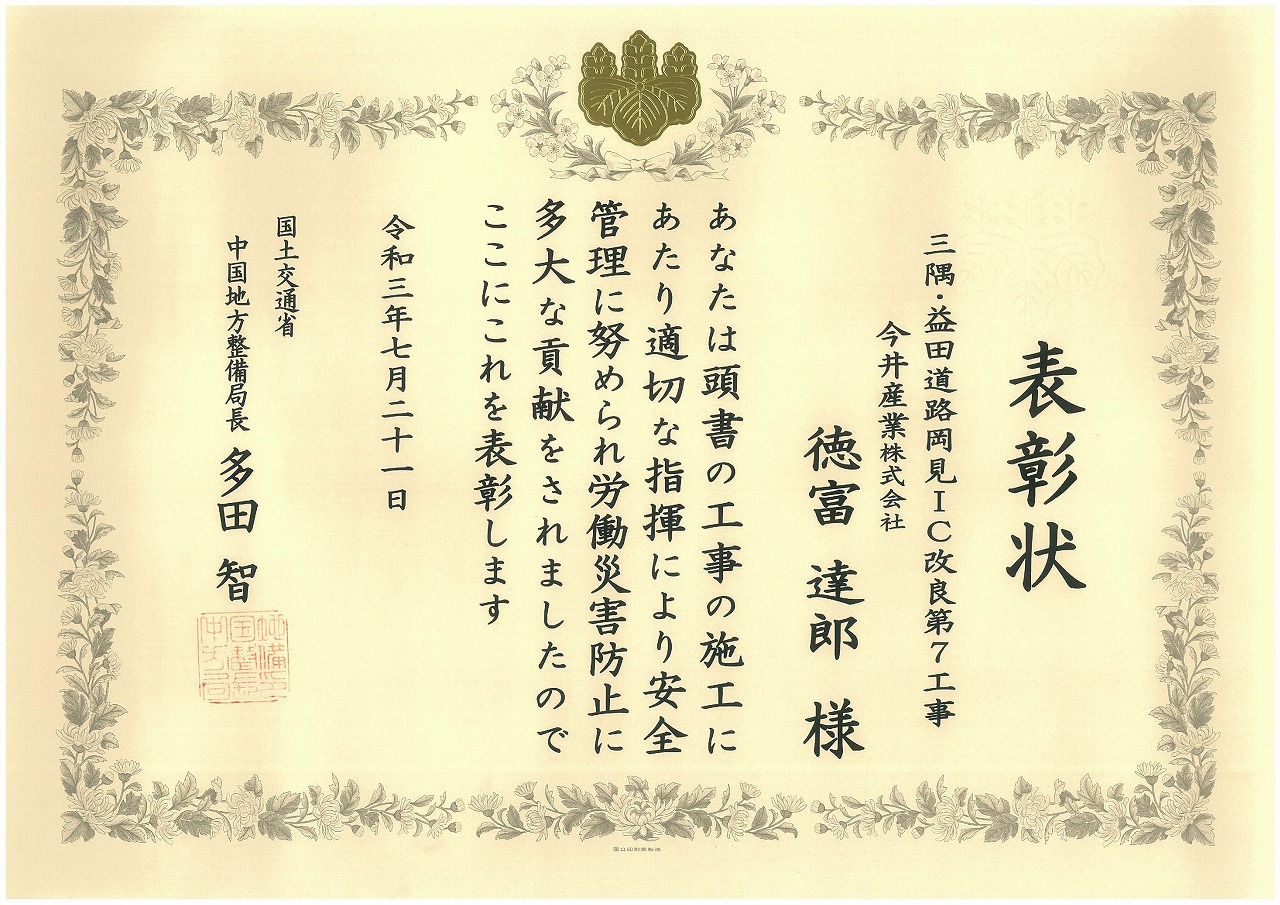 表彰状
三隅・益田道路岡見IC改良第7工事
今井産業株式会社
徳富 達郎 様
あなたは頭書の工事の施工に
あたり適切な指揮により安全
管理に努められ労働災害防止に
多大な貢献をされましたので
ここにこれを表彰します
令和三年七月二十一日
国土交通省
中国地方整備局長 多田 智
国立印刷局製造